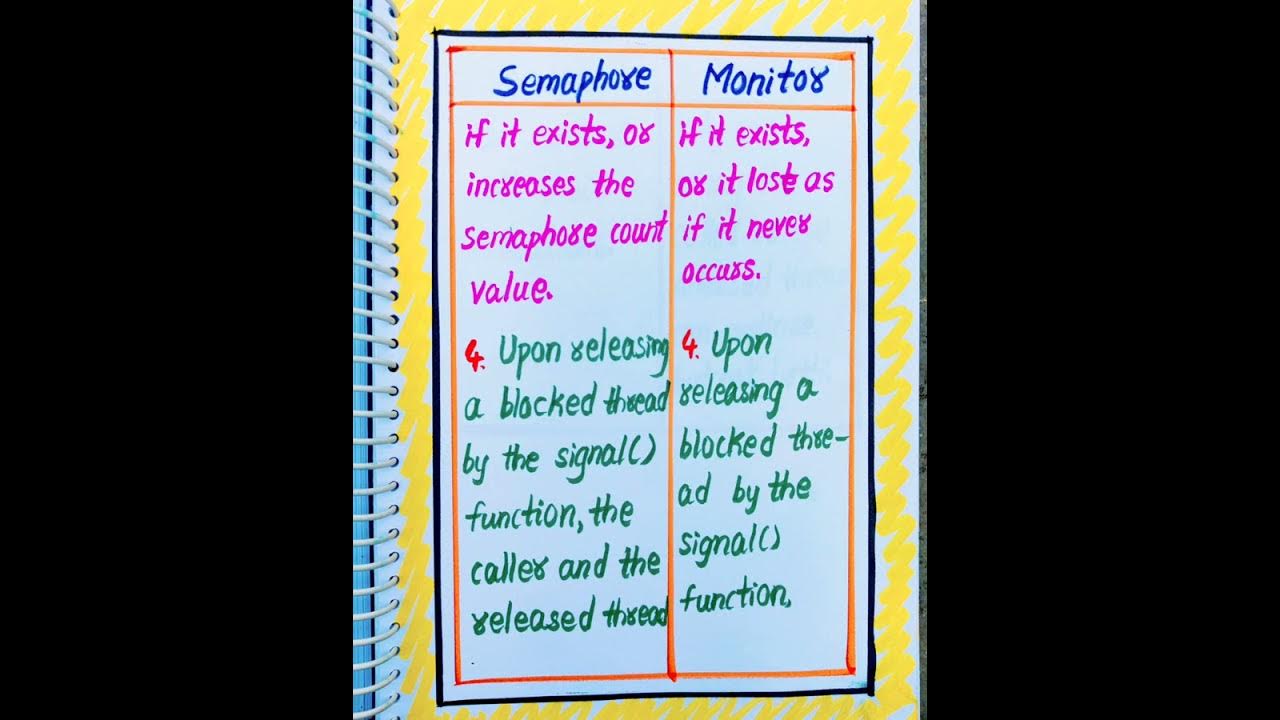 Semaphore
if it exists, or
increases the
semaphore count
value.
4. Upon releasing
a blocked thread
by the signal()
function, the
caller and the
released thread
Monitor
if it exists,
or it lost as
if it never
occurs.
4. Upon
releasing a
blocked thre-
ad by the
signal()
function,